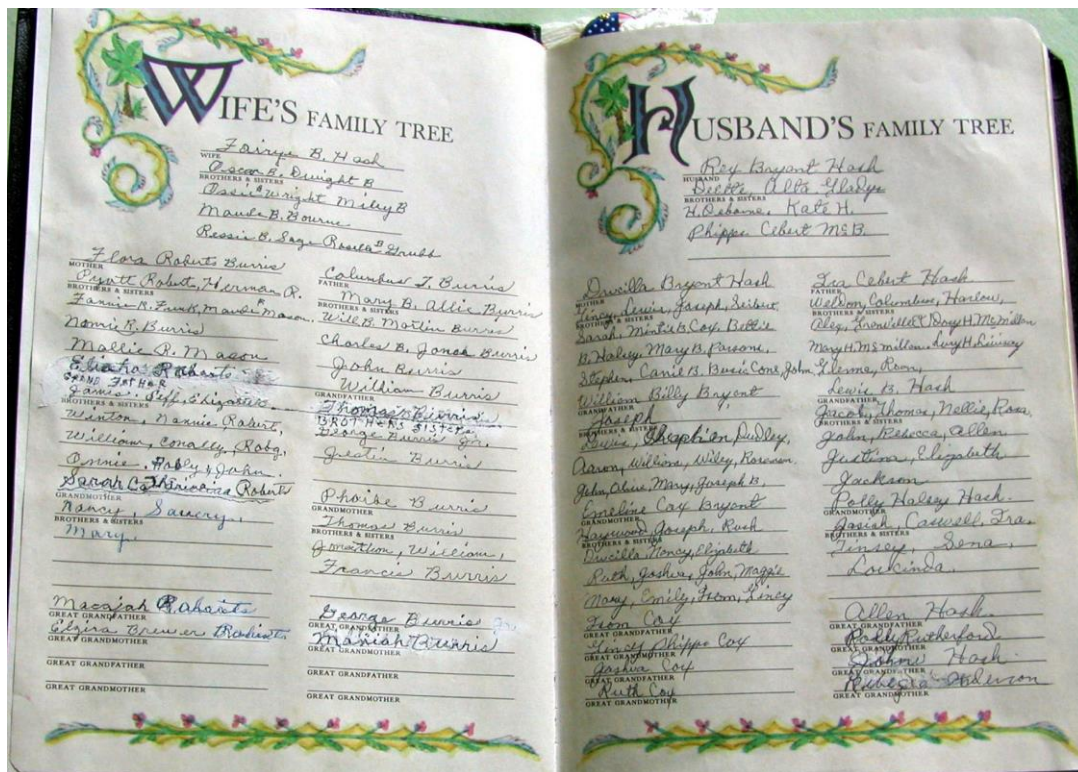 WIFE'S FAMILY TREE
Fairye B. Hash
WIFE
Oscar B. Dwight B
BROTHERS & SISTERS
Ossie Wright Miley B
Maude B. Bourne
Ressie B. Sage Rosella Grubb
Flora Roberts Burris
MOTHER
Pyatt Robert, Herman R.
BROTHERS & SISTERS
Fannie R. Funk, Maude Mason.
Nomie R. Burris
Mallie R. Mason
Elisha Roberts
GRAND FATHER
James, Jeff, Elizabeth
BROTHERS & SISTERS
Winton, Nannie Robert,
William, Conally, Roby,
Annie, Polly, John.
Sarah Roberts
GRANDMOTHER
Nancy,
BROTHERS & SISTERS
Mary,
Macajah Roberts
GREAT GRANDFATHER
Elzira Brewer Roberts
GREAT GRANDMOTHER
GREAT GRANDFATHER
GREAT GRANDMOTHER
Columbus F. Burris
FATHER
Mary B. Allie Burris
BROTHERS & SISTERS
Will B. Martin Burris
Charles B. Jonah Burris
John Burris
William Burris
GRANDFATHER
Thomas Burris
BROTHERS SISTERS
George Burris Jr.
Justin Burris
Phoibe Burris
GRANDMOTHER
Thomas Burris
BROTHERS & SISTERS
Jonathon, William,
Francis Burris
George Burris Jr.
GREAT GRANDFATHER
Mariah Burris
GREAT GRANDMOTHER
GREAT GRANDFATHER
GREAT GRANDMOTHER
HUSBAND'S FAMILY TREE
Rex Bryant Hash
HUSBAND
Alta Gladys
BROTHERS & SISTERS
H. Osborne, Kate H.
Phipps Cebert McB.
Drucilla Bryant Hash
MOTHER
Lincy, Lewis, Joseph, Seibert
BROTHERS & SISTERS
Sarah, Minta B. Cox, Bettie
B. Halsey, Mary B. Parsons,
Stephen, John
William Billy Bryant
GRANDFATHER
Joseph
Lewis, Stephen Dudley,
Aaron, William, Wiley,
John, Mary, Joseph B.
Emeline Cox Bryant
GRANDMOTHER
Haywood, Joseph, Rush
BROTHERS & SISTERS
Drucilla, Nancy, Elizabeth
Ruth, Joshua, John, Maggie
Mary, Emily, Lincy
Cox
GREAT GRANDFATHER
Lincy Phipps Cox
GREAT GRANDMOTHER
Joshua Cox
GREAT GRANDFATHER
Ruth Cox
GREAT GRANDMOTHER
Ira Cebert Hash
FATHER
Weldon, Columbus, Harlow,
BROTHERS & SISTERS
Aley, H. McMillan
Mary H. McMillan, Lucy H. Livesay
Glenne,
Lewis B. Hash
GRANDFATHER
Jacob, Thomas, Nellie, Rosa
BROTHERS & SISTERS
John, Rebecca, Allen
Justina, Elizabeth
Jackson
Polly Halsey Hash.
GRANDMOTHER
Josiah, Caswell, Ira.
BROTHERS & SISTERS
Tinsey, Sena,
Lockinda.
Allen Hash.
GREAT GRANDFATHER
Polly Rutherford
GREAT GRANDMOTHER
John Hash
GREAT GRANDFATHER
Rebecca Anderson
GREAT GRANDMOTHER